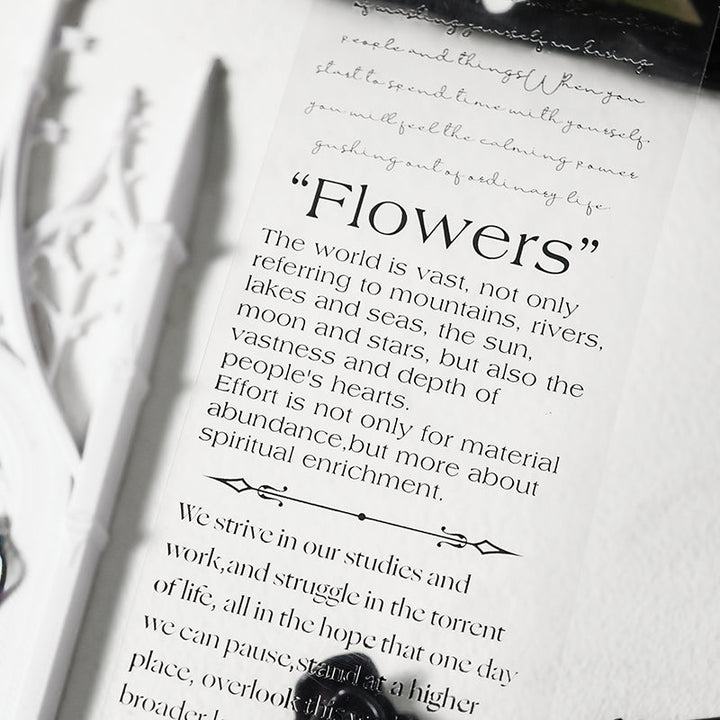 of wasting yourself in having
people and thingsWhen you
start to spend time with yourself.
you will feel the calming power
gushing out of ordinary life.
“Flowers”
The world is vast, not only
referring to mountains, rivers,
lakes and seas, the sun,
moon and stars, but also the
vastness and depth of
people's hearts.
Effort is not only for material
abundance,but more about
spiritual enrichment.
We strive in our studies and
work,and struggle in the torrent
of life, all in the hope that one day
we can pause,stand at a higher
place, overlook this
broader